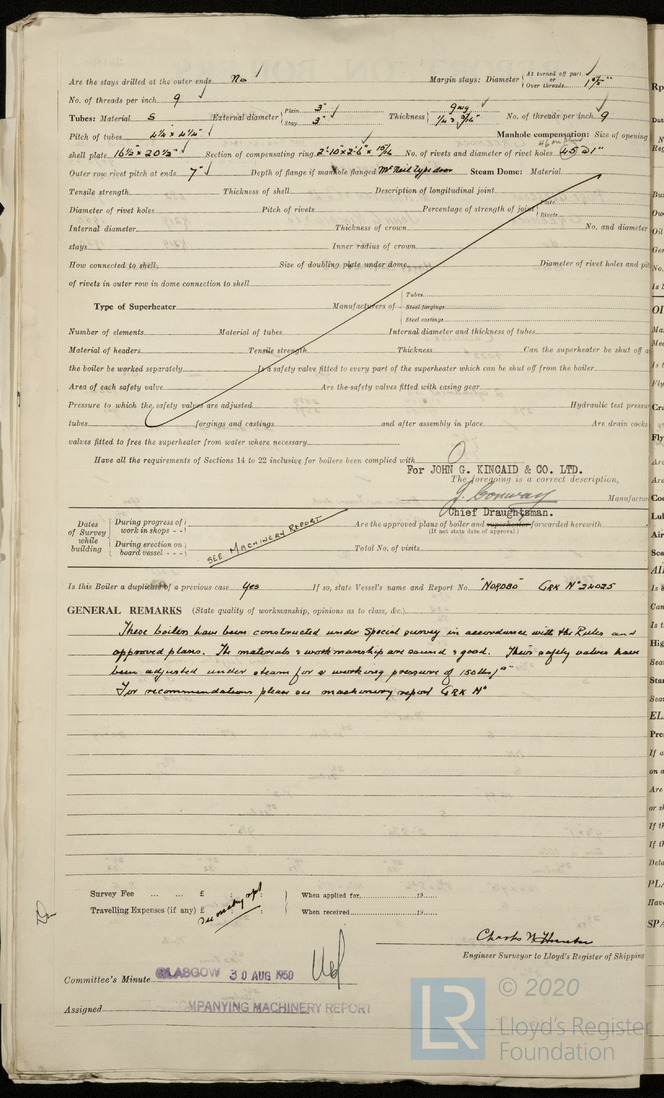 Are the stays drilled at the outer ends No Margin stays: Diameter { At turned off part. or Over threads. 1 5/8"
No. of threads per inch. 9
Tubes: Material S External diameter { Plain 3" Stay 3" Thickness { 9wg 1/4 & 5/16" No. of threads per inch. 9
Pitch of tubes 4 1/4 x 4 1/4" Manhole compensation: Size of opening
shell plate 16 1/2" x 20 1/2" Section of compensating ring 2'-10 x 2'-6 x 15/16 No. of rivets and diameter of rivet holes 45 @ 1"
Outer row rivet pitch at ends 7" Depth of flange if manhole flanged McNeil type door Steam Dome: Material
Tensile strength Thickness of shell Description of longitudinal joint
Diameter of rivet holes Pitch of rivets Percentage of strength of joint { Plate Rivets
Internal diameter Thickness of crown No. and diameter
stays Inner radius of crown
How connected to shell Size of doubling plate under dome Diameter of rivet holes and pit
of rivets in outer row in dome connection to shell
Type of Superheater Manufacturers of { Tubes Steel forgings Steel castings
Number of elements Material of tubes Internal diameter and thickness of tubes
Material of headers Tensile strength Thickness Can the superheater be shut off a
the boiler be worked separately Is a safety valve fitted to every part of the superheater which can be shut off from the boiler
Area of each safety valve Are the safety valves fitted with easing gear
Pressure to which the safety valves are adjusted Hydraulic test pressu
tubes forgings and castings and after assembly in place Are drain cocks
valves fitted to free the superheater from water where necessary
Have all the requirements of Sections 14 to 22 inclusive for boilers been complied with
For JOHN G. KINCAID & CO. LTD.
The foregoing is a correct description,
J. Conway Manufactur
Chief Draughtsman.
Dates of Survey while building { During progress of work in shops - - } { During erection on board vessel - - - } SEE MACHINERY REPORT
Are the approved plans of boiler and superheater forwarded herewith
(If not state date of approval.)
Total No. of visits
Is this Boiler a duplicate of a previous case Yes If so, state Vessel's name and Report No. "NORDBO" GRK No 24025
GENERAL REMARKS (State quality of workmanship, opinions as to class, &c.)
These boilers have been constructed under Special survey in accordance with the Rules and
approved plans. The materials & workmanship are sound & good. Their safety valves have
been adjusted under steam for a working pressure of 150 lbs/□"
For recommendations please see machinery report GRK No
Survey Fee ... ... £ : : When applied for, 19
Travelling Expenses (if any) £ : : When received, 19
Charles W Hunter
Engineer Surveyor to Lloyd's Register of Shippin
Committee's Minute GLASGOW 30 AUG 1950
Assigned MPANYING MACHINERY REPORT
LR © 2020
Lloyd's Register
Foundation